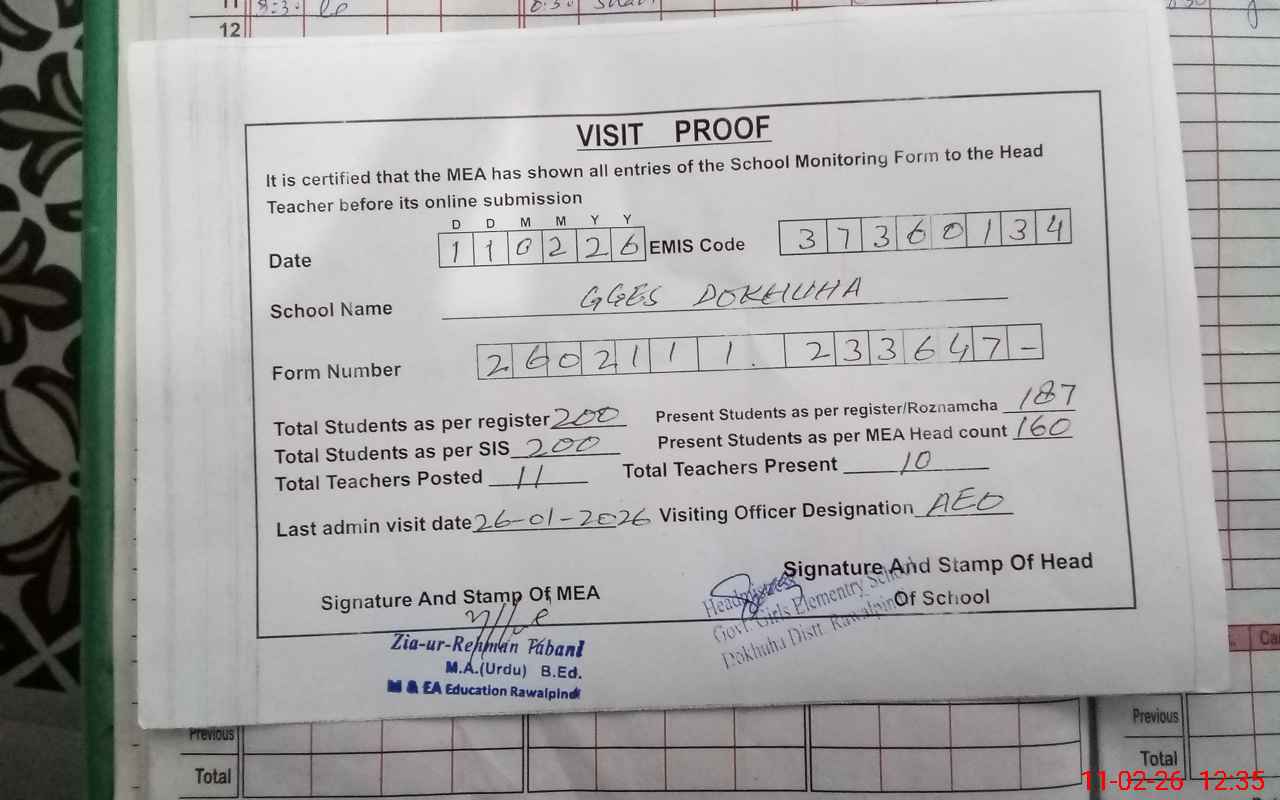 11 8:30
12
VISIT PROOF
It is certified that the MEA has shown all entries of the School Monitoring Form to the Head
Teacher before its online submission
D D M M Y Y
Date 1 1 0 2 2 6 EMIS Code 3 7 3 6 0 1 3 4
School Name GGES DOKHUHA
Form Number 2 6 0 2 1 1 1 . 2 3 3 6 4 7 -
Total Students as per register 200 Present Students as per register/Roznamcha 187
Total Students as per SIS 200 Present Students as per MEA Head count 160
Total Teachers Posted 11 Total Teachers Present 10
Last admin visit date 26-01-2026 Visiting Officer Designation AEO
Signature And Stamp Of MEA Signature And Stamp Of Head
Of School
Zia-ur-Rehman Tabani
M.A.(Urdu) B.Ed.
M & EA Education Rawalpindi
Headmistress
Govt. Girls Elementry School
Dokhuha Distt. Rawalpindi
Previous
Total
Previous
Total
11-02-26 12:35